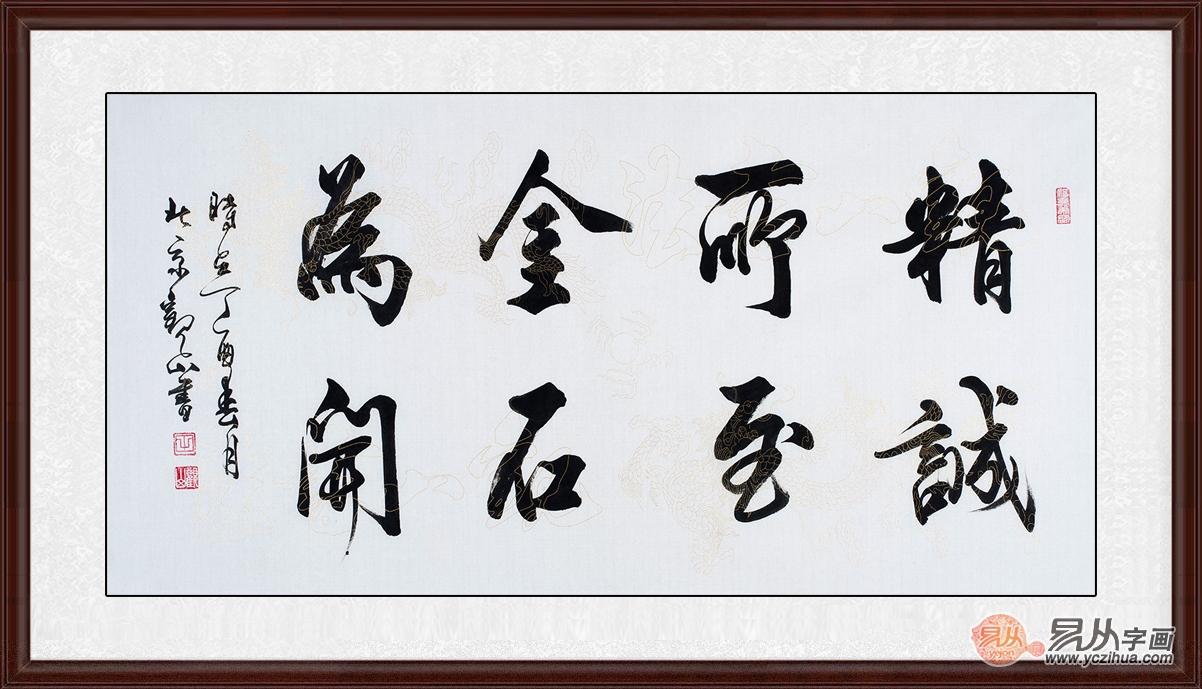 精誠
所至
金石
為開
時在丁酉春月
北京觀山書
易从
易从字画
www.yczihua.com